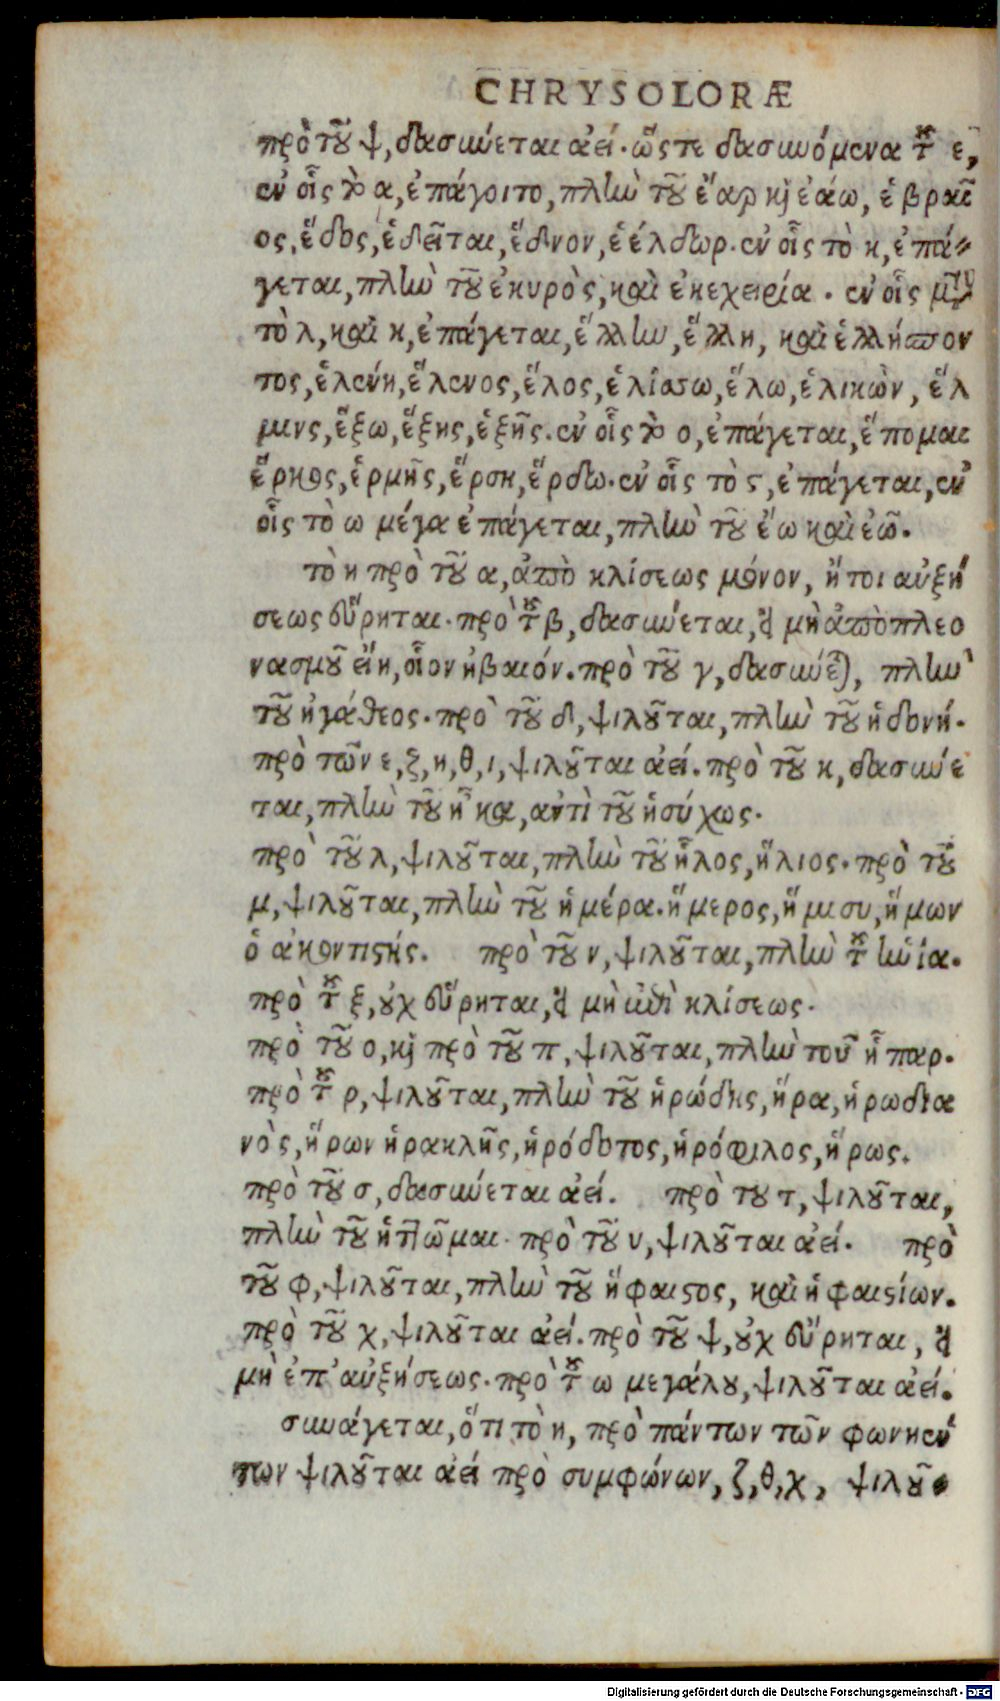 CHRYSOLORÆ
πρὸ τοῦ ψ, δασωύεται ἀεί. ὥςτε δασωυόμενα τοῦ ε,
ἐν οἷς τὸ α, ἐπάγοιτο, πλὴν τοῦ ἔαρ καὶ ἐάω, ἑβραῖ
ος, ἕδος, ἑδεῖται, ἕδνον, ἑέλδωρ. ἐν οἷς τὸ κ, ἐπά-
γεται, πλὴν τοῦ ἐκυρὸς, καὶ ἐκεχειρία. ἐν οἷς μετὰ
τὸ λ, καὶ κ, ἐπάγεται, ἕλλην, ἕλλη, καὶ ἑλλήσπον
τος, ἑλένη, ἕλενος, ἕλος, ἑλίσσω, ἕλω, ἑλικὼν, ἕλ
μινς, ἕξω, ἕξης, ἑξῆς. ἐν οἷς τὸ ο, ἐπάγεται, ἕπομαι
ἕρκος, ἑρμῆς, ἕρση, ἕρδω. ἐν οἷς τὸ ς, ἐπάγεται, ἐν
οἷς τὸ ω μέγα ἐπάγεται, πλὴν τοῦ ἔω καὶ ἐῶ.
τὸ η πρὸ τοῦ α, ἀπὸ κλίσεως μόνον, ἤτοι αὐξή
σεως εὕρηται. πρὸ τοῦ β, δασωύεται, εἰ μὴ ἀπὸ πλεο
νασμοῦ εἴη, οἷον ἠβαιόν. πρὸ τοῦ γ, δασωύεται, πλὴν
τοῦ ἠγάθεος. πρὸ τοῦ δ, ψιλοῦται, πλὴν τοῦ ἡδονή.
πρὸ τῶν ε, ξ, η, θ, ι, ψιλοῦται ἀεί. πρὸ τοῦ κ, δασωύε
ται, πλὴν τοῦ ἦκα, ἀντὶ τοῦ ἡσύχως.
πρὸ τοῦ λ, ψιλοῦται, πλὴν τοῦ ἧλος, ἥλιος. πρὸ τοῦ
μ, ψιλοῦται, πλὴν τοῦ ἡμέρα. ἥμερος, ἥμισυ, ἥμων
ὁ ἀκοντιστής. πρὸ τοῦ ν, ψιλοῦται, πλὴν τοῦ ἡνία.
πρὸ τοῦ ξ, οὐχ εὕρηται, εἰ μὴ ἐπὶ κλίσεως.
πρὸ τοῦ ο, καὶ πρὸ τοῦ π, ψιλοῦται, πλὴν τοῦ ἧπαρ.
πρὸ τοῦ ρ, ψιλοῦται, πλὴν τοῦ ἡρώδης, ἥρα, ἡρωδια
νὸς, ἥρων ἡρακλῆς, ἡρόδοτος, ἡρόφιλος, ἥρως.
πρὸ τοῦ σ, δασωύεται ἀεί. πρὸ του τ, ψιλοῦται,
πλὴν τοῦ ἡττῶμαι. πρὸ τοῦ υ, ψιλοῦται ἀεί. πρὸ
τοῦ φ, ψιλοῦται, πλὴν τοῦ ἥφαιστος, καὶ ἡφαιστίων.
πρὸ τοῦ χ, ψιλοῦται ἀεί. πρὸ τοῦ ψ, οὐχ εὕρηται, εἰ
μὴ ἐπ' αὐξήσεως. πρὸ τοῦ ω μεγάλου, ψιλοῦται ἀεί.
συνάγεται, ὅτι τὸ η, πρὸ πάντων τῶν φωνηέν
των ψιλοῦται ἀεί πρὸ συμφώνων, ζ, θ, χ, ψιλοῦ-
Digitalisierung gefördert durch die Deutsche Forschungsgemeinschaft - DFG